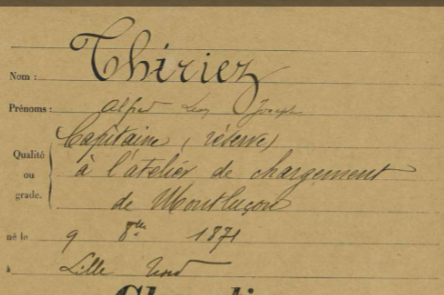 Nom : Thiriez
Prénoms : Alfred Leon Joseph
Capitaine (réserve)
Qualité ou grade. à l'atelier de chargement
de Montluçon
né le 9 8bre 1871
à Lille Nord